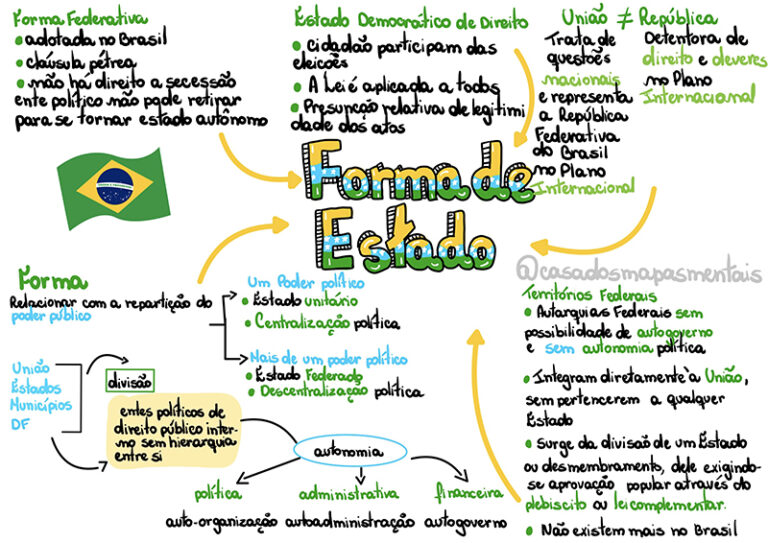 Forma Federativa
• adotada no Brasil
• cláusula pétrea
• não há direito a secessão
ente político não pode retirar
para se tornar estado autônomo
Estado Democrático de Direito
• cidadão participam das
eleicões
• A Lei é aplicada a todos
• Presunção relativa de legitimi
dade dos atos
União ≠ República
Trata de
questões
nacionais
e representa
a República
Federativa
do Brasil
no Plano
Internacional
Detentora de
direito e deveres
no Plano
Internacional
Forma de
Estado
@casadosmapasmentais
Forma
Relacionar com a repartição do
poder público
Um Poder político
• Estado unitário
• Centralização política
Mais de um poder político
• Estado Federado
• Descentralização política
União
Estados
Municípios
DF
divisão
entes políticos de
direito público inter-
no sem hierarquia
entre si
autonomia
política
auto-organização
administrativa
autoadministração
financeira
autogoverno
Territórios Federais
• Autarquias Federais sem
possibilidade de autogoverno
e sem autonomia política
• Integram diretamente à União,
sem pertencerem a qualquer
Estado
• Surge da divisão de um Estado
ou desmembramento, dele exigindo-
se aprovação popular através do
plebiscito ou lei complementar.
• Não existem mais no Brasil